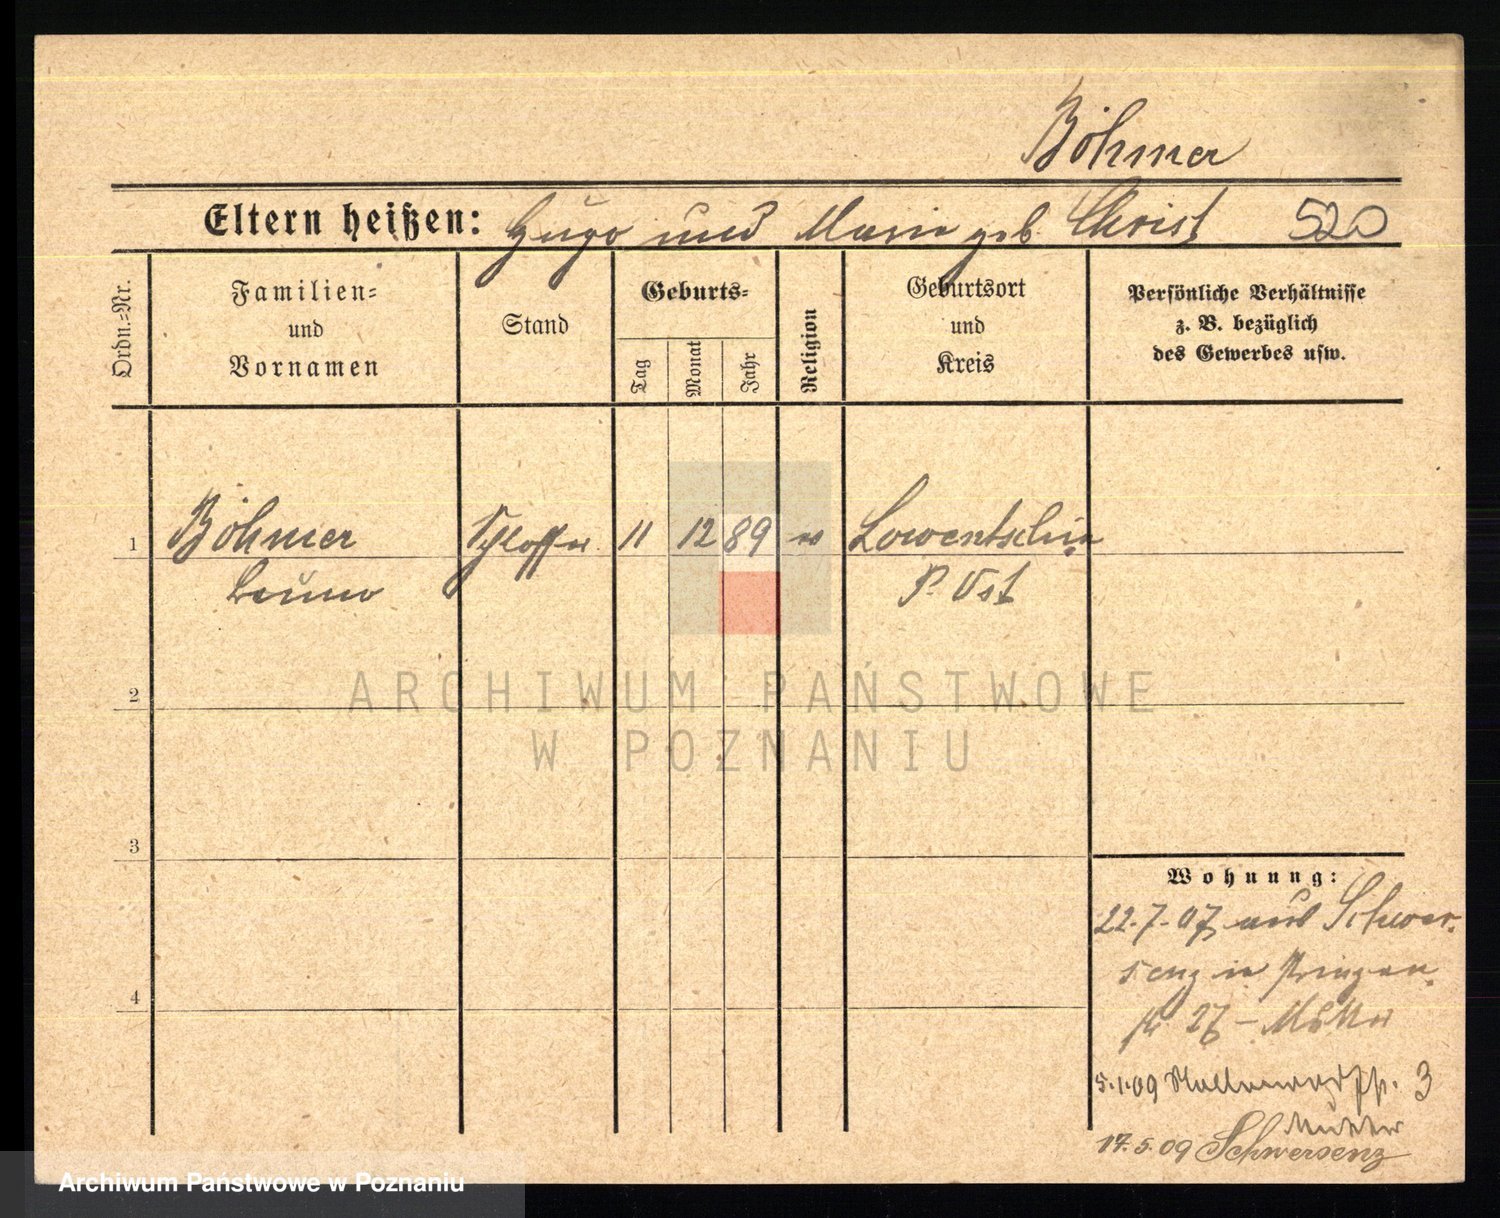 Böhmer
Eltern heißen: Hugo und Marie geb. Christ 520
Ordn.=Nr.
Familien=
und
Vornamen
Stand
Geburts=
Tag
Monat
Jahr
Religion
Geburtsort
und
Kreis
Persönliche Verhältnisse
z. B. bezüglich
des Gewerbes usw.
1 Böhmer Schlosser 11 12 89 Lowentschin
Bruno P. Ost
ARCHIWUM PAŃSTWOWE
W POZNANIU
2
3
4
Wohnung:
22.7.07 aus Schwer-
senz in Prinzen-
str 27 – Mutter
5.1.09 3
Mutter
17.5.09 Schwersenz
Archiwum Państwowe w Poznaniu